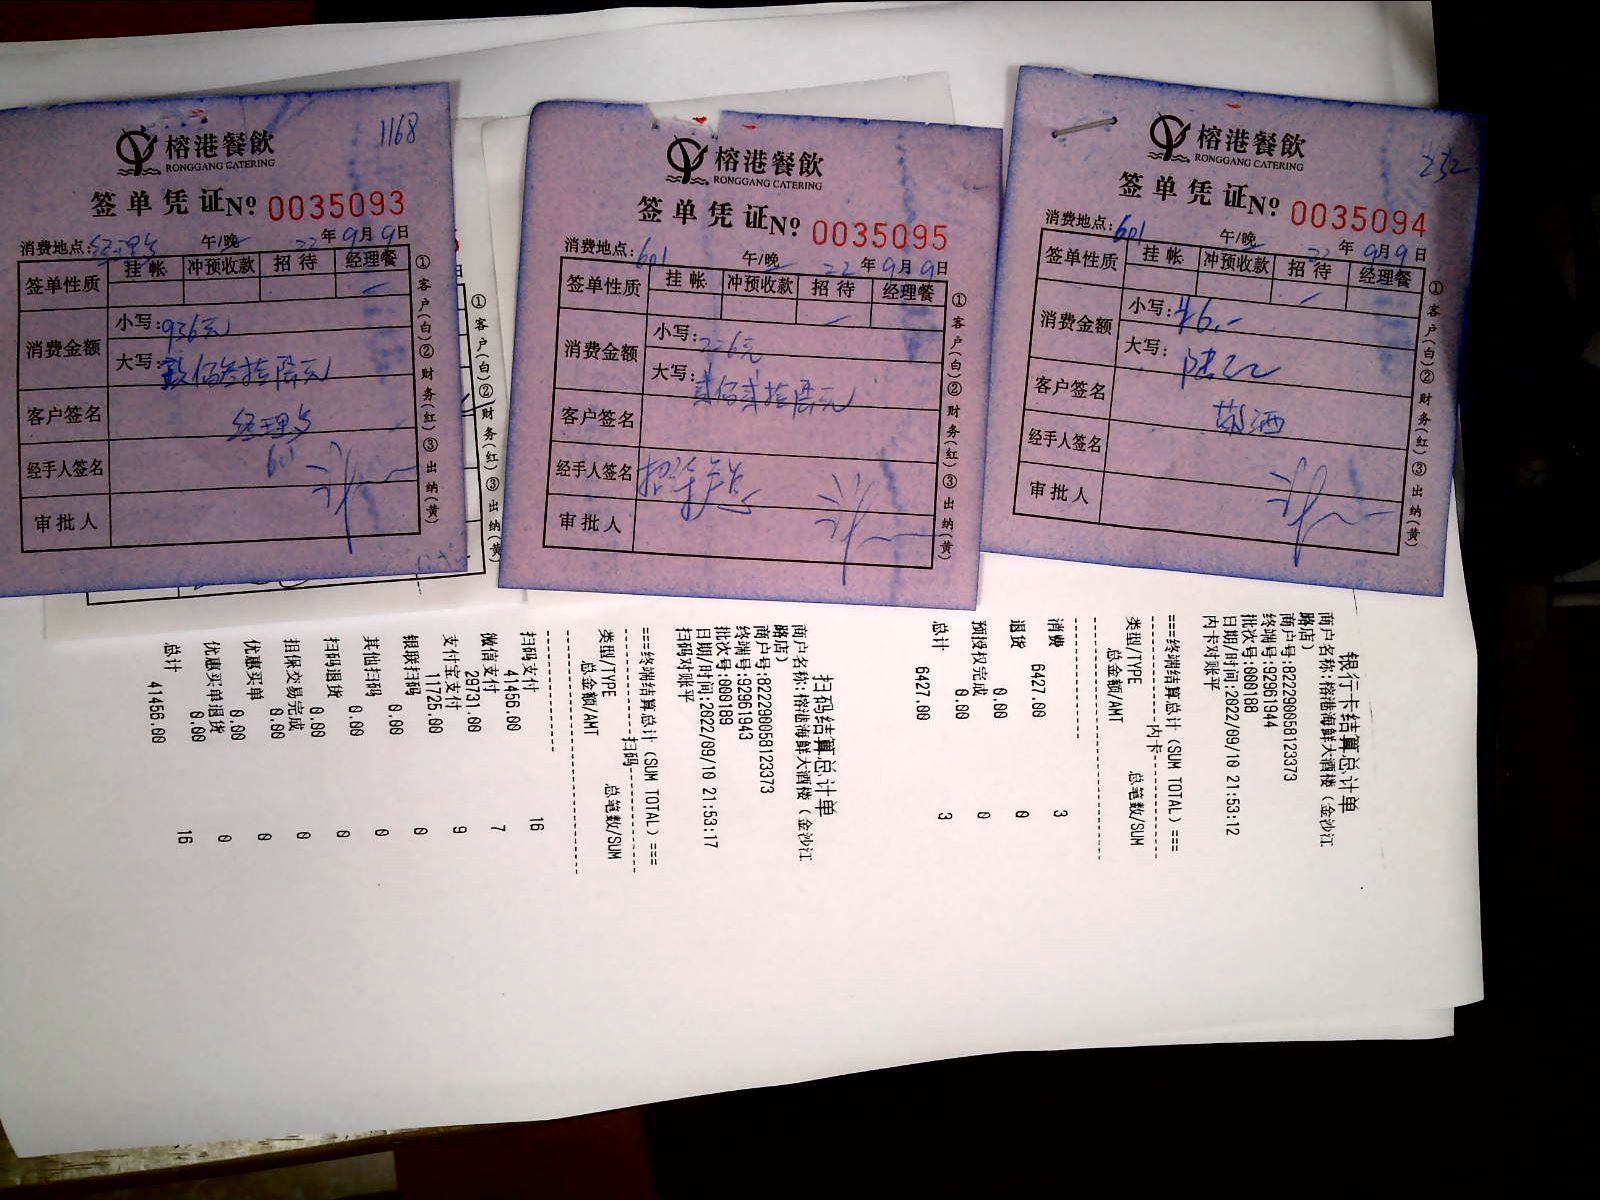 榕港餐飲
RONGGANG CATERING
1168
签单凭证№ 0035093
消费地点: 经理乡 午/晚 22年9月9日
签单性质 挂帐 冲预收款 招待 经理餐
消费金额 小写:936元
大写:玖佰叁拾陆元
客户签名
经手人签名 601
审批人
①客户(白)②财务(红)③出纳(黄)
①客户(白)②财务(红)③出纳(黄)
榕港餐飲
RONGGANG CATERING
签单凭证№ 0035095
消费地点:601 午/晚 22年9月9日
签单性质 挂帐 冲预收款 招待 经理餐
消费金额 小写:226元
大写:贰佰贰拾陆元
客户签名
经手人签名
审批人
①客户(白)②财务(红)③出纳(黄)
榕港餐飲
RONGGANG CATERING
232
签单凭证№ 0035094
消费地点:601 午/晚 22年9月9日
签单性质 挂帐 冲预收款 招待 经理餐
消费金额 小写:¥6.-
大写:陆元
客户签名
经手人签名
审批人
①客户(白)②财务(红)③出纳(黄)
银行卡结算总计单
商户名称:榕港海鲜大酒楼(金沙江
路店)
商户号:822290058123373
终端号:92961944
批次号:000188
日期/时间:2022/09/10 21:53:12
内卡对账平
===终端结算总计(SUM TOTAL)===
----------内卡----------
类型/TYPE 总笔数/SUM
总金额/AMT
消费 3
6427.00
退货 0
0.00
预授权完成 0
0.00
总计 3
6427.00
扫码结算总计单
商户名称:榕港海鲜大酒楼(金沙江
路店)
商户号:822290058123373
终端号:92961943
批次号:000189
日期/时间:2022/09/10 21:53:17
扫码对账平
===终端结算总计(SUM TOTAL)===
----------扫码----------
类型/TYPE 总笔数/SUM
总金额/AMT
扫码支付 16
41456.00
微信支付 7
29731.00
支付宝支付 9
11725.00
银联扫码 0
0.00
其他扫码 0
0.00
扫码退货 0
0.00
担保交易完成 0
0.00
优惠买单 0
0.00
优惠买单退货 0
0.00
总计 16
41456.00